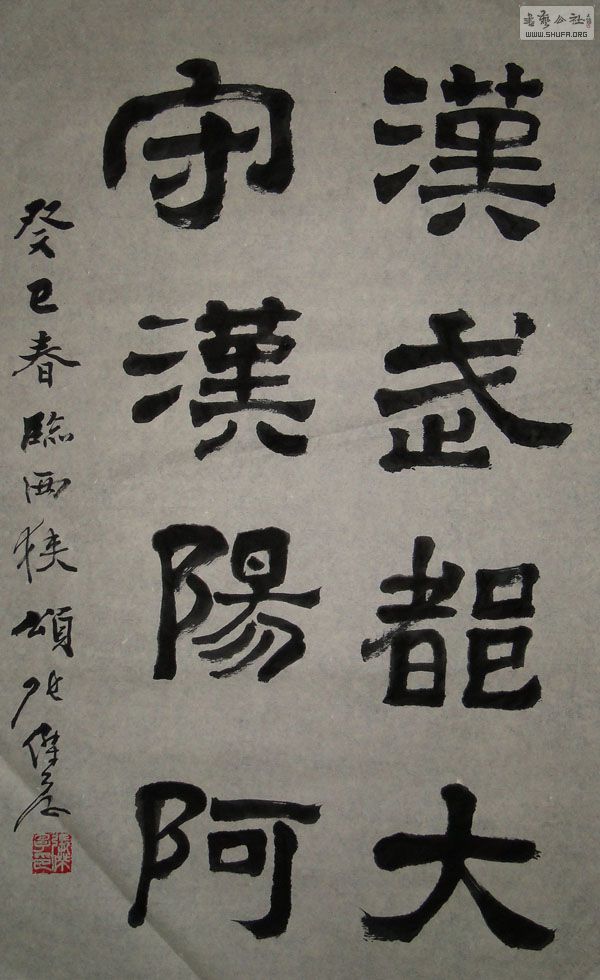 漢武都大
守漢陽阿
癸巳春臨西狭頌张傑
書藝公社
WWW.SHUFA.ORG